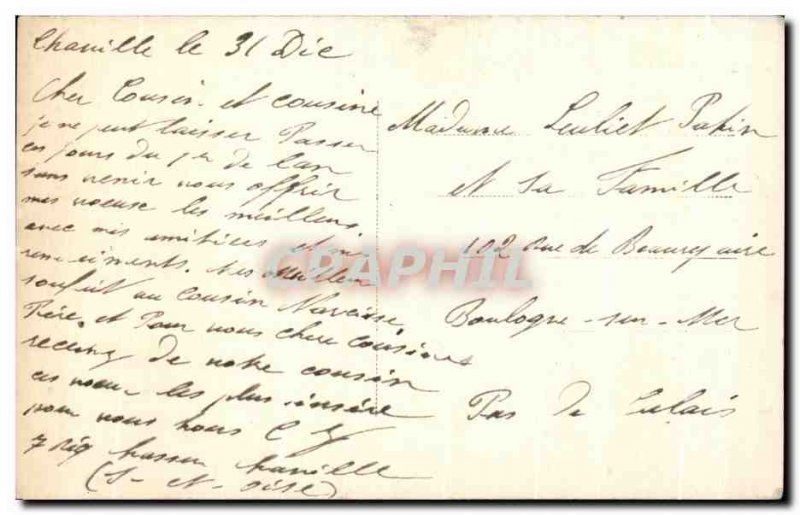 Chaville le 31 Dec
Cher Cousin et cousine
je ne peut laisser Passer
ces jours du 1er de l'an
sans venir vous offrir
mes voeuse les meilleurs
avec mes amitiées et
souhait au cousin Narcisse
Père, et Pour vous cher cousines
recevez de notre cousin
ces voeux les plus insère
pour vous tous
Chaville
(S-et-oise)
Madame Leuliet Patin
et Sa Famille
102 rue de Beaurepaire
Boulogne-sur-Mer
Pas de Calais
CPAPHIL